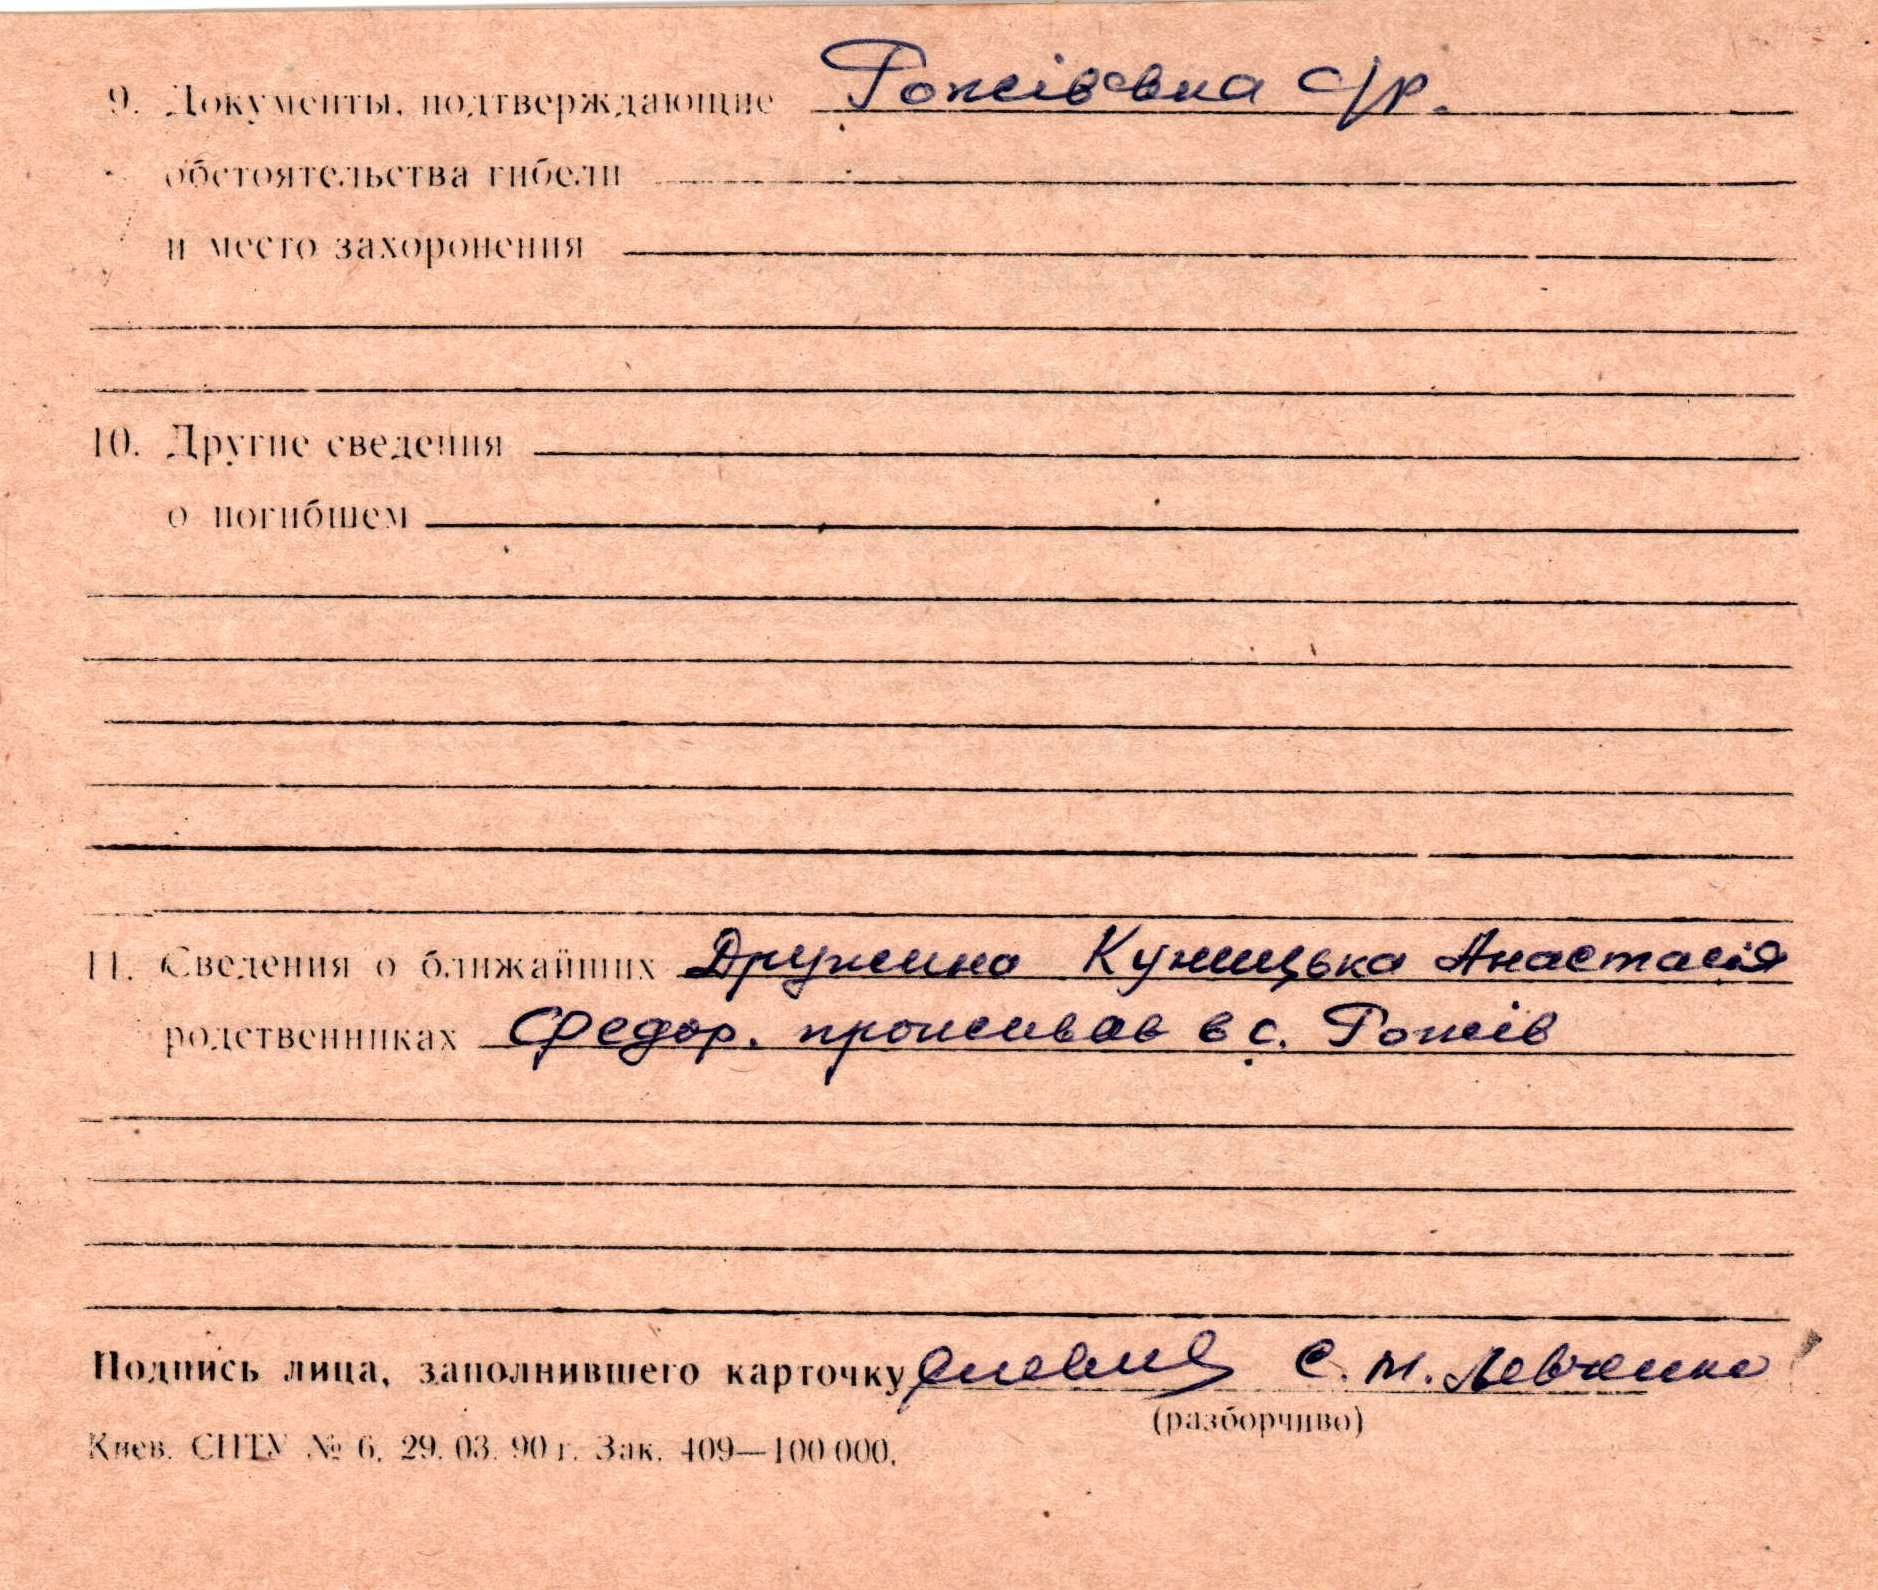 9. Документы, подтверждающие Рожівська с/р.
обстоятельства гибели
и место захоронения
10. Другие сведения
о погибшем
11. Сведения о ближайших Дружина Куницька Анастасія
родственниках Федор. проживав в с. Рожів
Подпись лица, заполнившего карточку С. М. Левченко
(разборчиво)
Киев. СПТУ № 6. 29. 03. 90 г. Зак. 409—100 000.